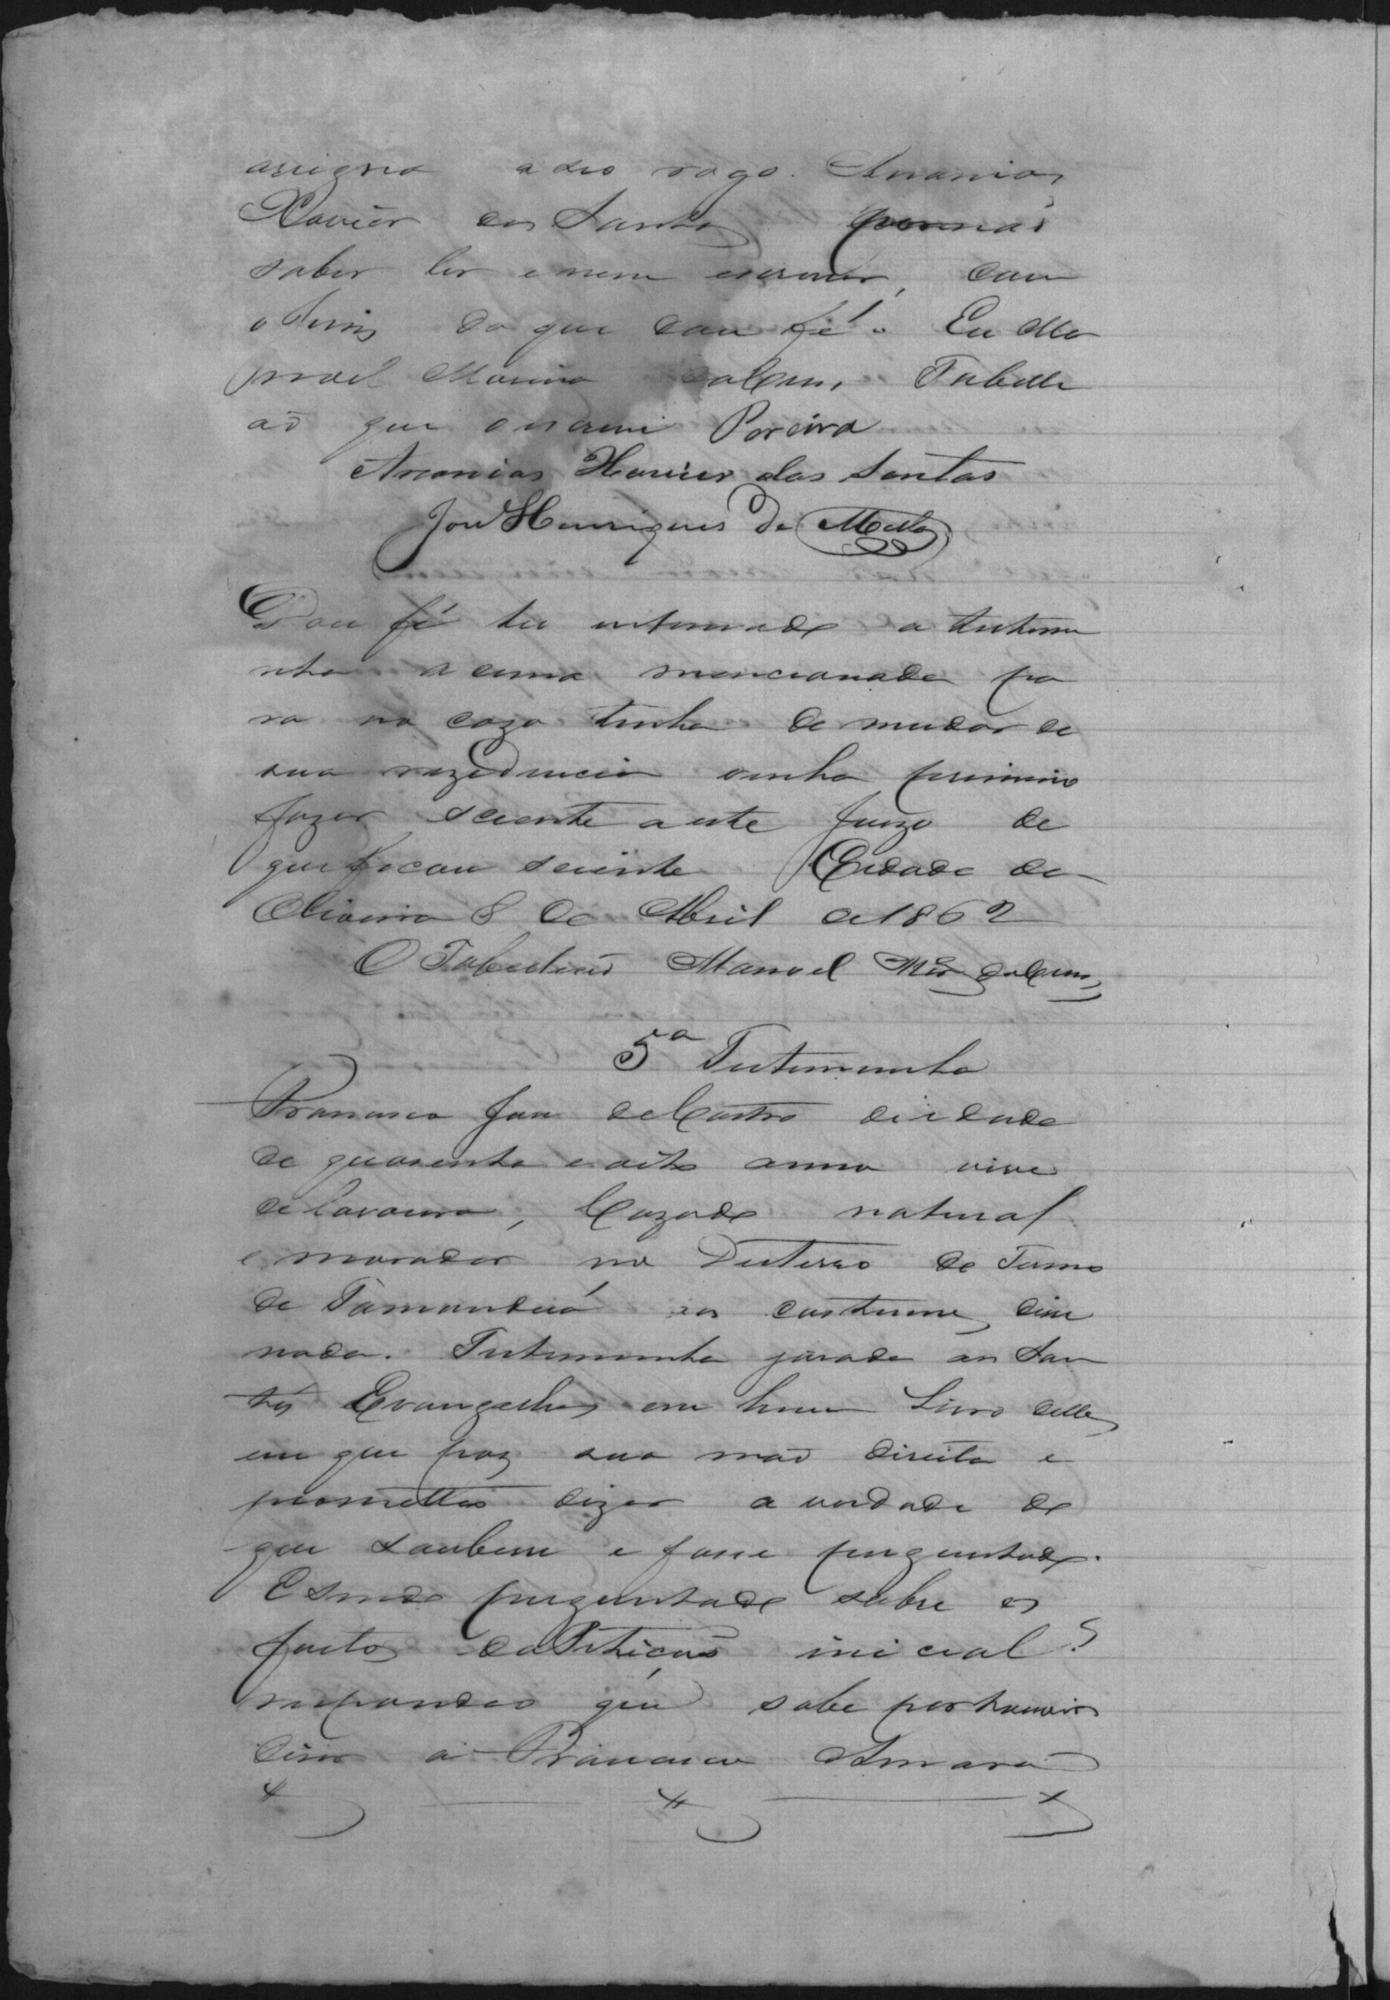 assigna a seo rogo Ananias
Xavier dos Santos por naõ
saber ler e nem escrever, com
o Juis do que dou fé. Eu Ma
noel Marino Tabelli
aõ que o escrevi Pereira
Ananias Xavier dos Santos
José Henriques de Mello
Dou fé ter intemado a testemu
nha acima mencionada pa
ra no cazo tenha de mudar de
sua rezidencia venha primeiro
fazer sciente a este Juizo de
que ficou sciente Cidade de
Oliveira 8 de Abril de 1862
O Tabeliaõ Manoel
5ª Testemunha
Francisco José de Castro de idade
de quarenta e oito annos vive
de lavoura, Cazado natural
e morador no Desterro de Termo
de Tamanduá aos costumes disse
nada. Testemunha jurada aos San
tos Evangelhos em hum Livro delles
em que poz sua maõ direita e
prometteo dizer a verdade do
que soubesse e fosse perguntado.
E sendo perguntado sobre os
factos da Petiçaõ inicial?
respondeo que sabe por houvir
dizer a Francisco Amaro